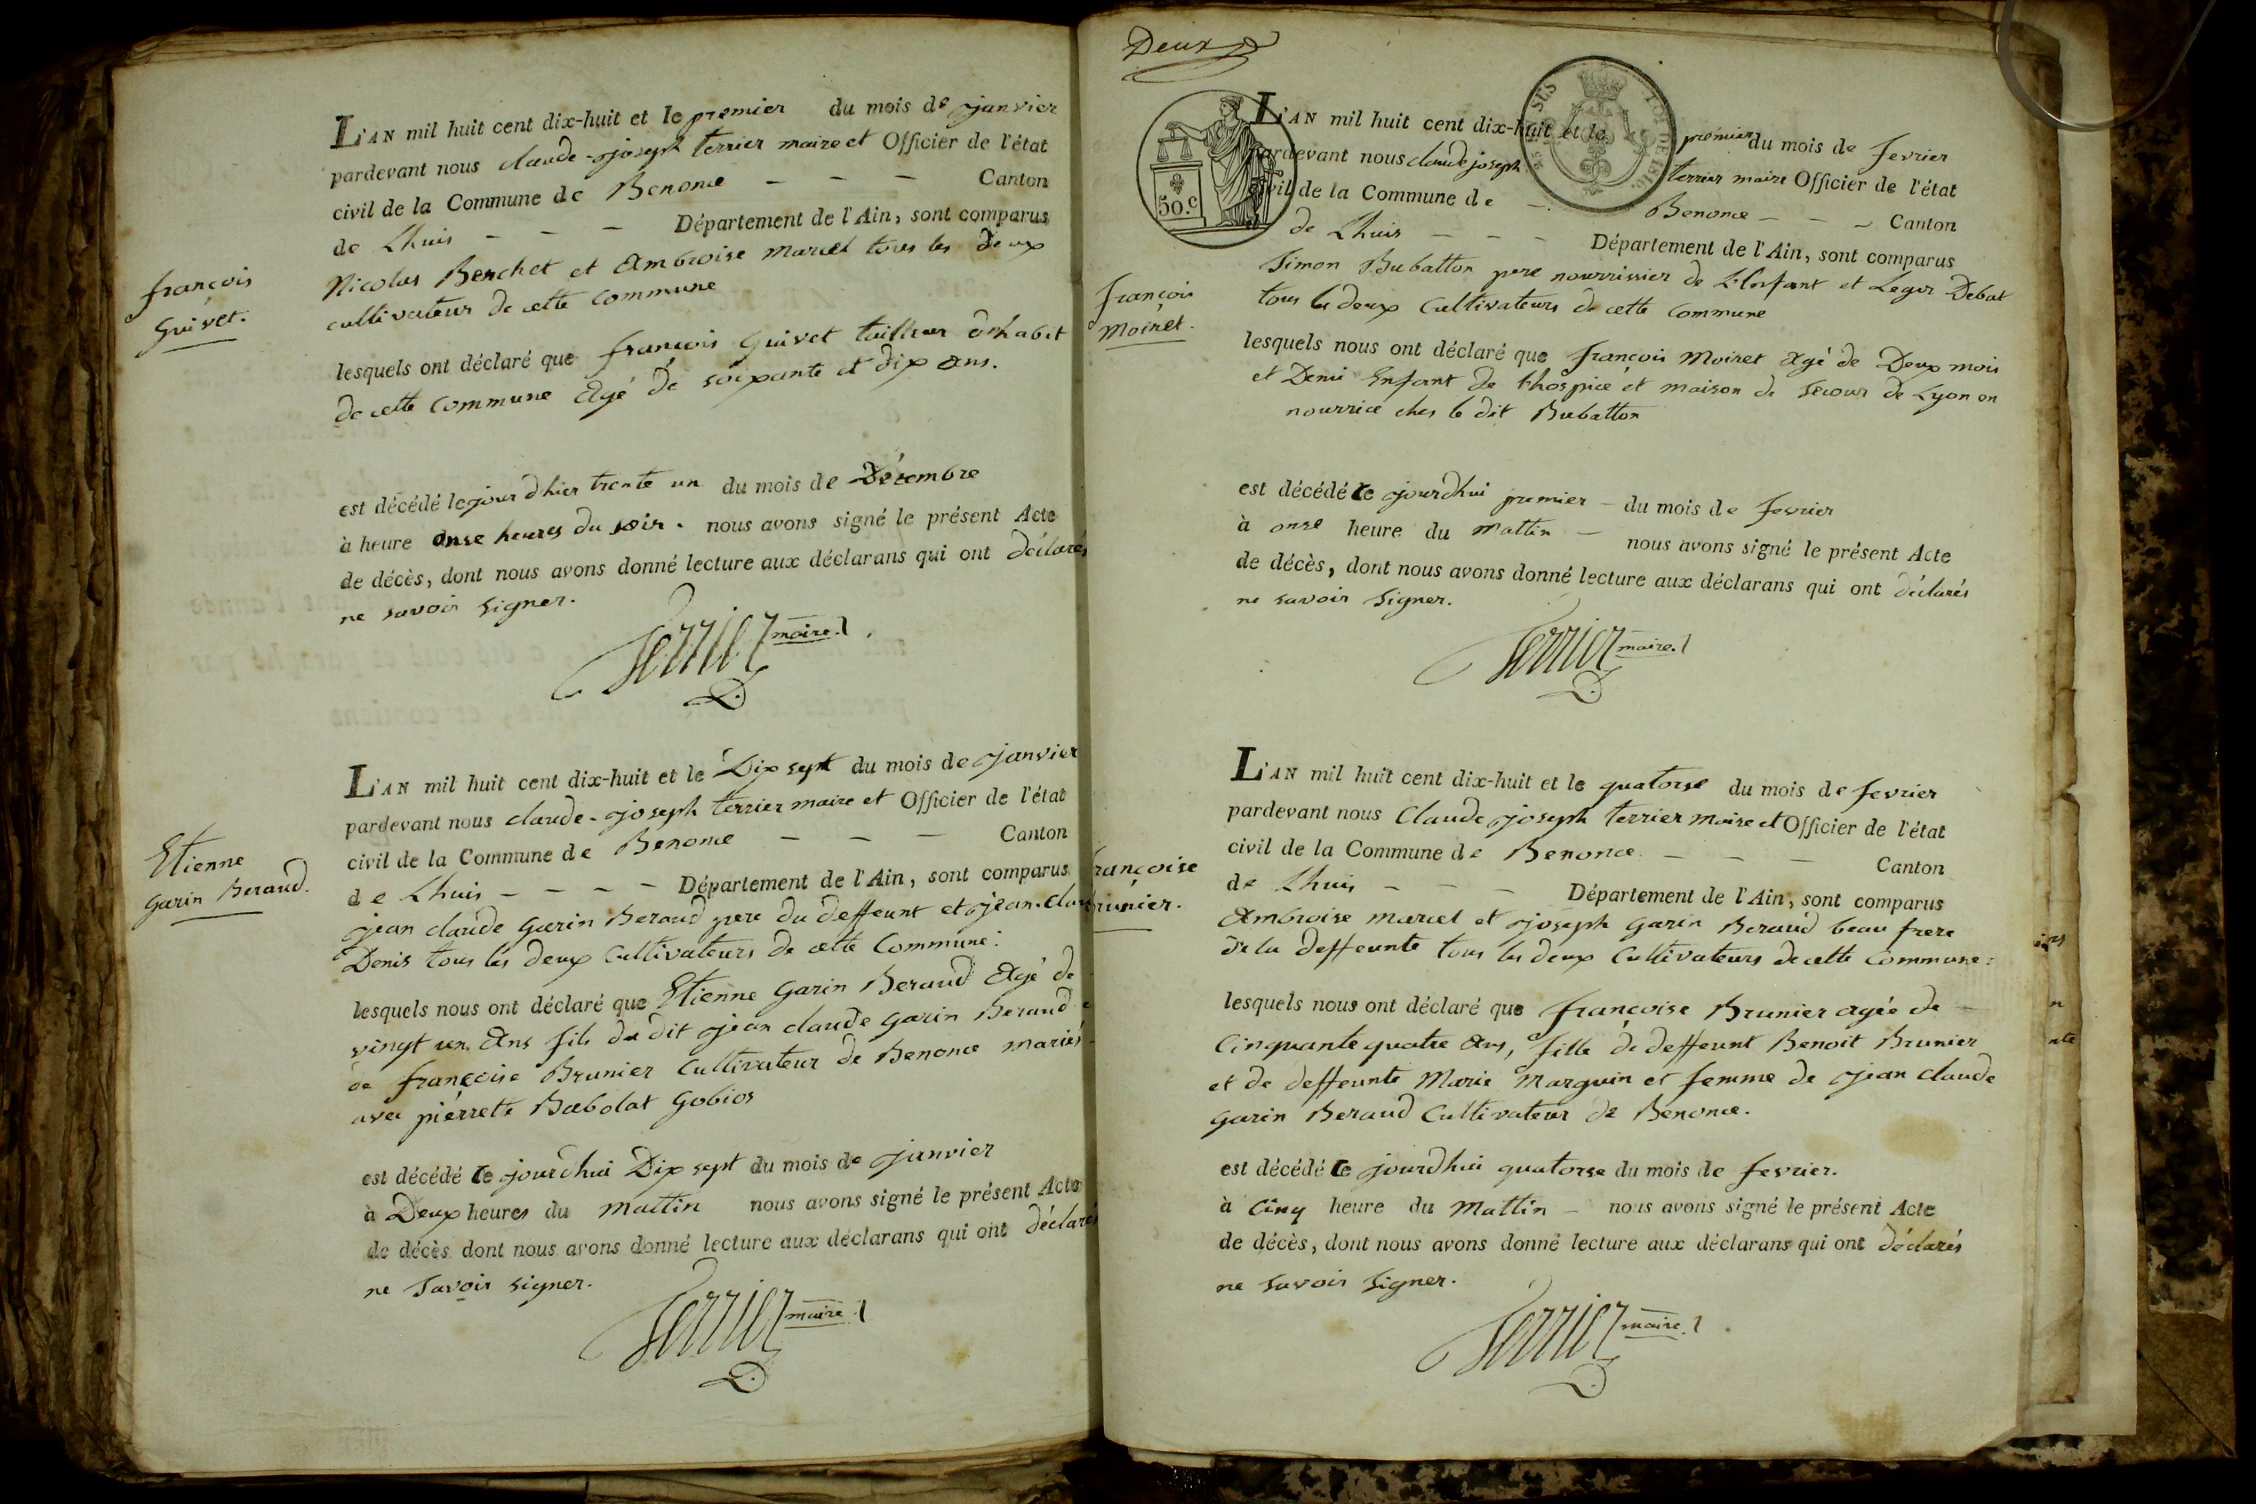 L'AN mil huit cent dix-huit et le premier du mois de janvier
pardevant nous claude-joseph terrier maire et Officier de l'état
civil de la Commune de Benonce — — — Canton
de Lhuis — — — Département de l'Ain, sont comparus
Nicolas Berchet et Ambroise Marcel tous les deux
cultivateur de cette Commune
françois
Guivet.
lesquels ont déclaré que françois Guivet tailleur d'habit
de cette Commune Agé de soixante et dix ans.
est décédé le jour d'hier trente un du mois de Décembre
à heure onse heures du soir. nous avons signé le présent Acte
de décès, dont nous avons donné lecture aux déclarans qui ont déclarés
ne savoir signer.
Terrier maire.
L'AN mil huit cent dix-huit et le Dix sept du mois de janvier
pardevant nous claude-joseph terrier maire et Officier de l'état
civil de la Commune de Benonce — — — Canton
de Lhuis — — — — Département de l'Ain, sont comparus
Etienne
Garin Beraud.
jean claude Garin Beraud pere du deffeunt et jean-clau
Denis tous les deux Cultivateurs de cette Commune.
lesquels nous ont déclaré que Etienne Garin Beraud Agé de
vingt un Ans fils du dit jean claude Garin Beraud
de françoise Brunier Cultivateur de Benonce mariés
avec pierrette Babolat Gobios
est décédé ce jourd'hui Dix sept du mois de janvier
à Deux heures du mattin nous avons signé le présent Acte
de décès dont nous avons donné lecture aux déclarans qui ont déclarés
ne Savoir signer.
Terrier maire
Deux
50.c
L'AN mil huit cent dix-huit et le premier du mois de fevrier
pardevant nous claude joseph terrier maire Officier de l'état
civil de la Commune de — Benonce — — — Canton
de Lhuis — — — Département de l'Ain, sont comparus
Simon Bubatton pere nourrissier de L'Enfant et Leger Debat
tous les deux Cultivateurs de cette Commune
françois
Moiret.
lesquels nous ont déclaré que françois Moiret Agé de Deux mois
et Demi Enfant de Lhospice et maison de Secour de Lyon en
nourrice ches le dit Bubatton
est décédé ce jourdhui premier — du mois de fevrier
à onse heure du Mattin — nous avons signé le présent Acte
de décès, dont nous avons donné lecture aux déclarans qui ont déclarés
ne savoir Signer.
Terrier maire.
L'AN mil huit cent dix-huit et le quatorse du mois de fevrier
pardevant nous Claude joseph terrier Maire et Officier de l'état
civil de la Commune de Benonce — — — Canton
de Lhuis — — — Département de l'Ain, sont comparus
françoise
Brunier.
Ambroise Marcel et joseph Garin Beraud beau frere
de la deffeunte tous les deux Cultivateurs de cette Commune:
lesquels nous ont déclaré que françoise Brunier agée de —
Cinquante quatre Ans, fille de deffeunt Benoit Brunier
et de deffeunte Marie Marguin et femme de jean Claude
Garin Beraud Cultivateur de Benonce.
est décédé ce jourdhui quatorse du mois de fevrier.
à Cinq heure du Mattin — nous avons signé le présent Acte
de décès, dont nous avons donné lecture aux déclarans qui ont déclarés
ne Savoir Signer.
Terrier maire.